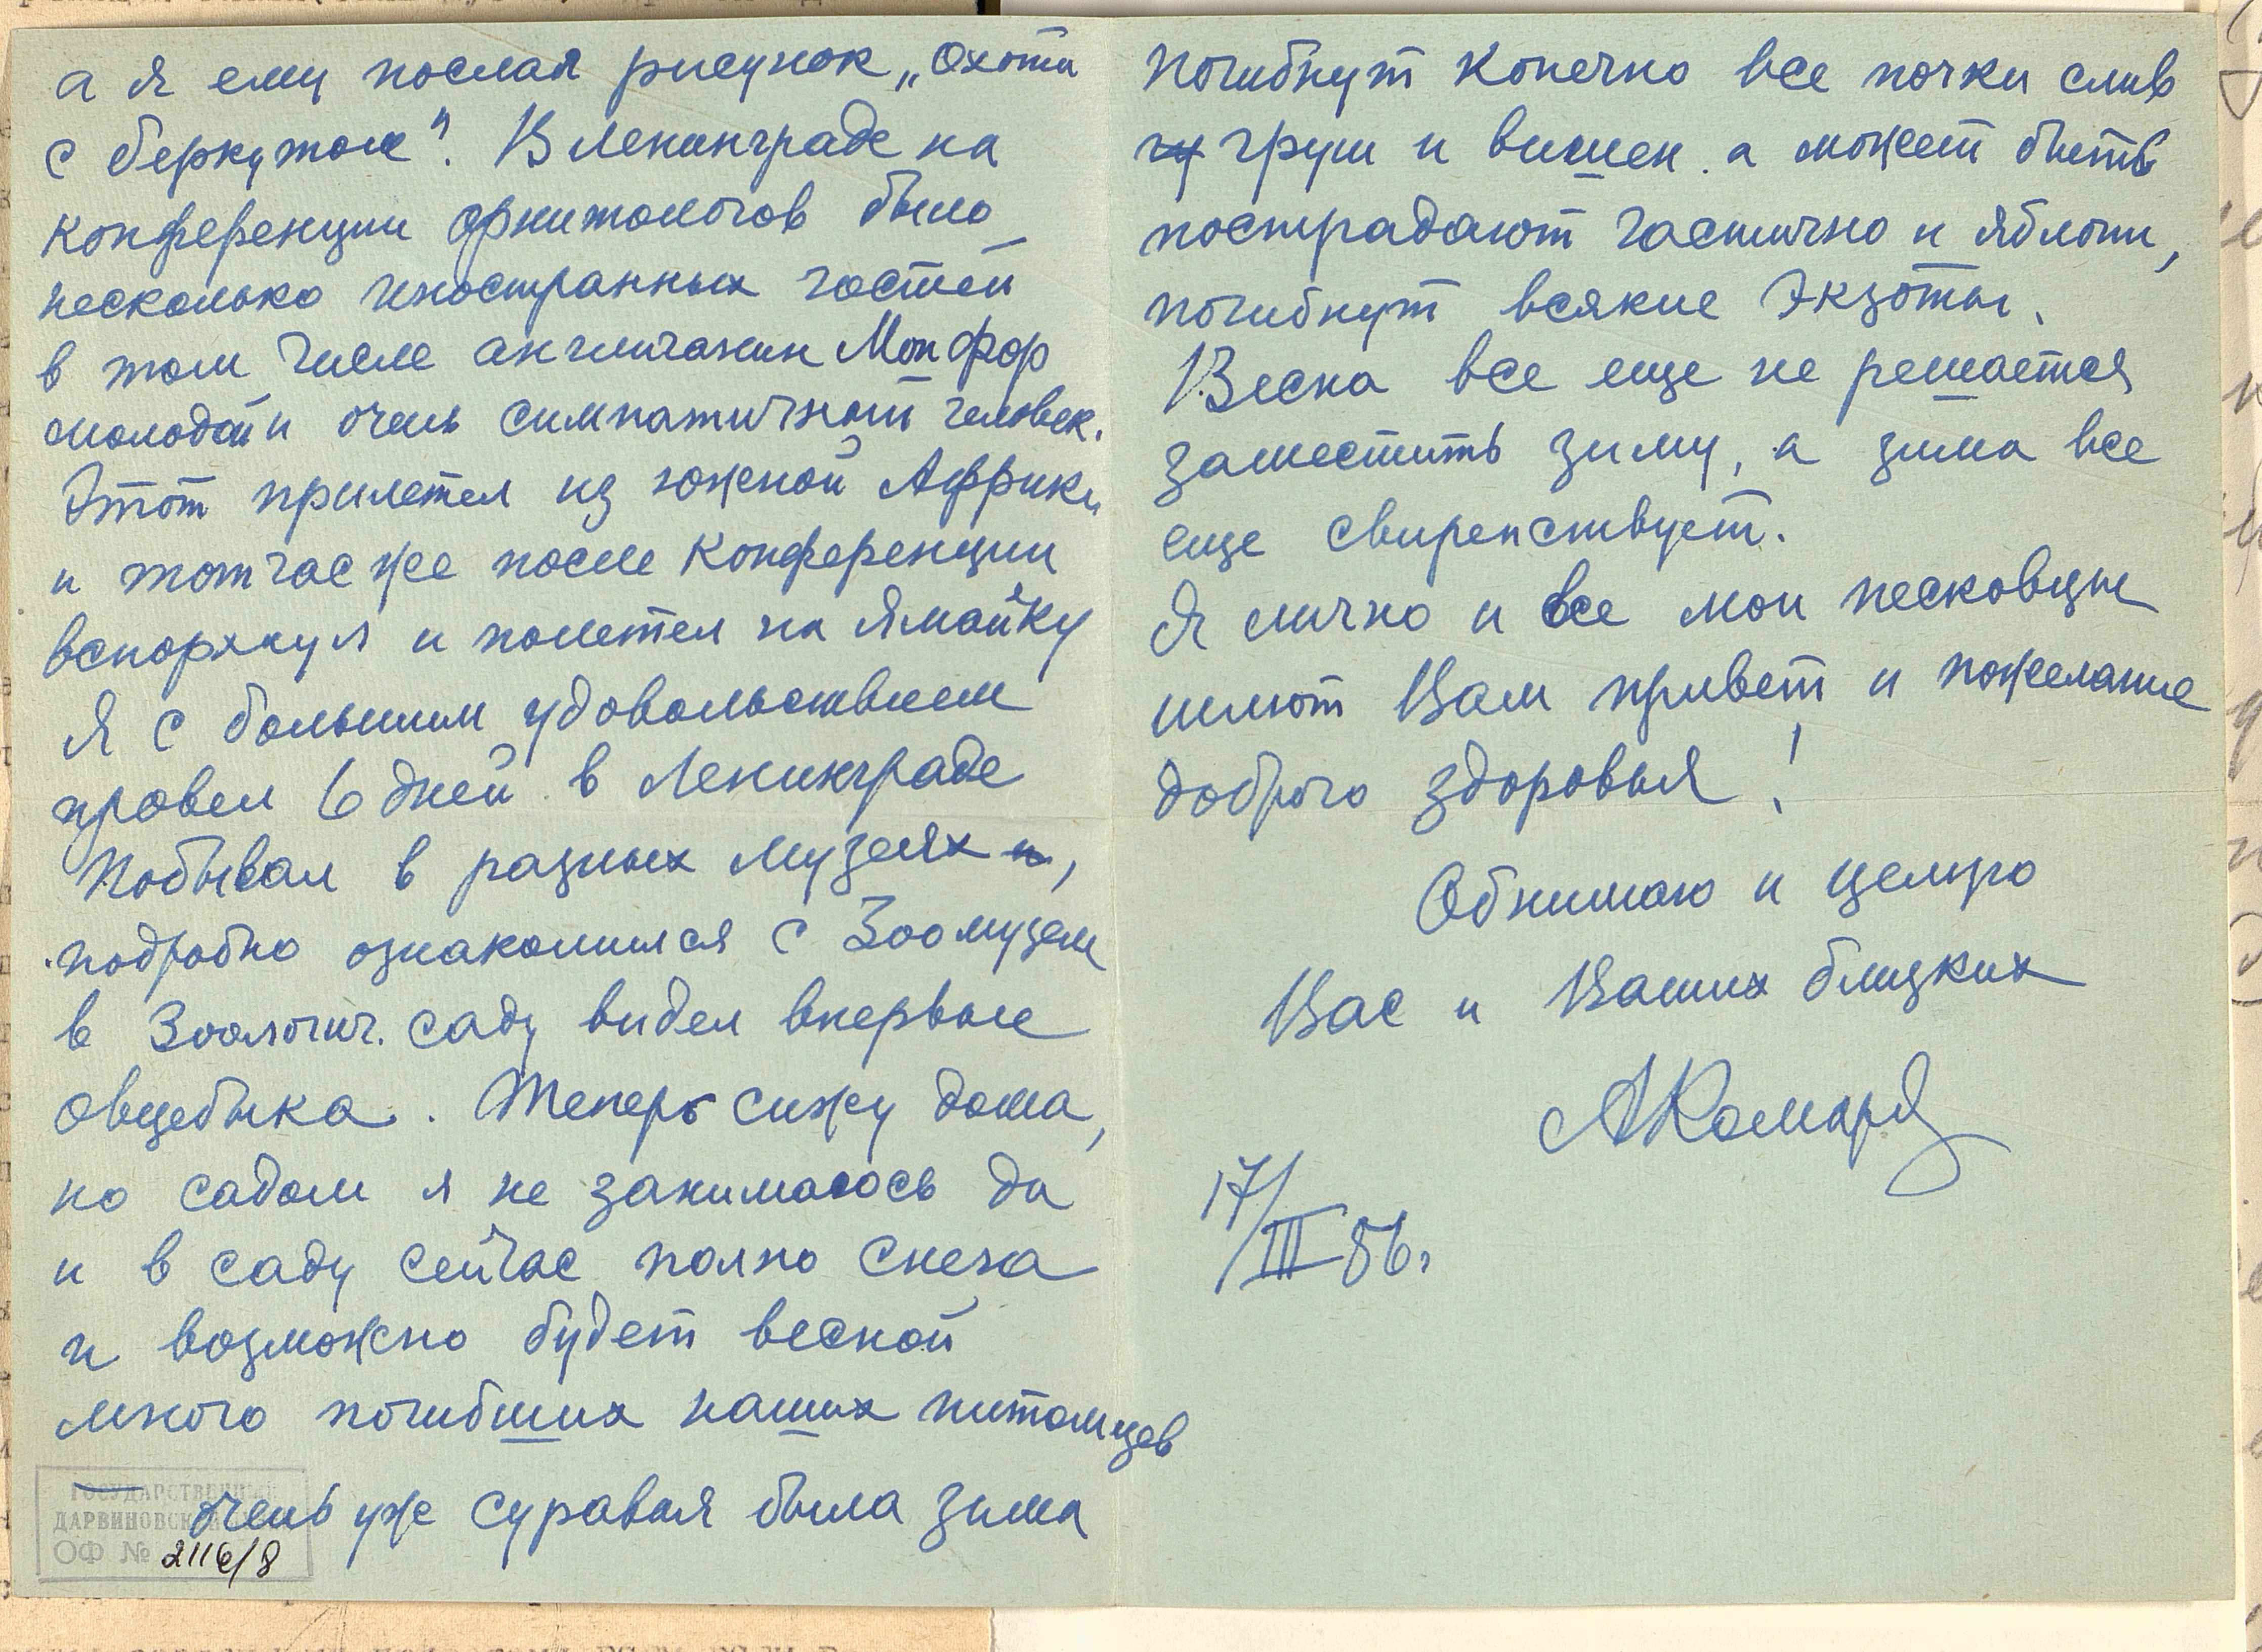 а я ему послал рисунок „Охота
с беркутом". В Ленинграде на
конференции орнитологов было
несколько иностранных гостей
в том числе англичанин Монфор
молодой и очень симпатичный человек.
Этот прилетел из южной Африки
и тотчас же после конференции
вспорхнул и полетел на Ямайку
Я с большим удовольствием
провел 6 дней в Ленинграде
Побывал в разных музеях,
подробно ознакомился с Зоомузеем
в Зоологич. саду видел впервые
овцебыка. Теперь сижу дома,
но садом я не занимаюсь да
и в саду сейчас полно снега
и возможно будет весной
много погибших наших питомцев
очень уж суровая была зима
ГОСУДАРСТВЕННЫЙ
ДАРВИНОВСКИЙ
ОФ № 2116/8
погибнут конечно все почки слив
груш и вишен. а может быть
пострадают частично и яблони,
погибнут всякие экзоты.
Весна все еще не решается
заместить зиму, а зима все
еще свирепствует.
Я лично и все мои песковцы
шлют Вам привет и пожелание
доброго здоровья!
Обнимаю и целую
Вас и Ваших близких
АКомаров
17/III 56г